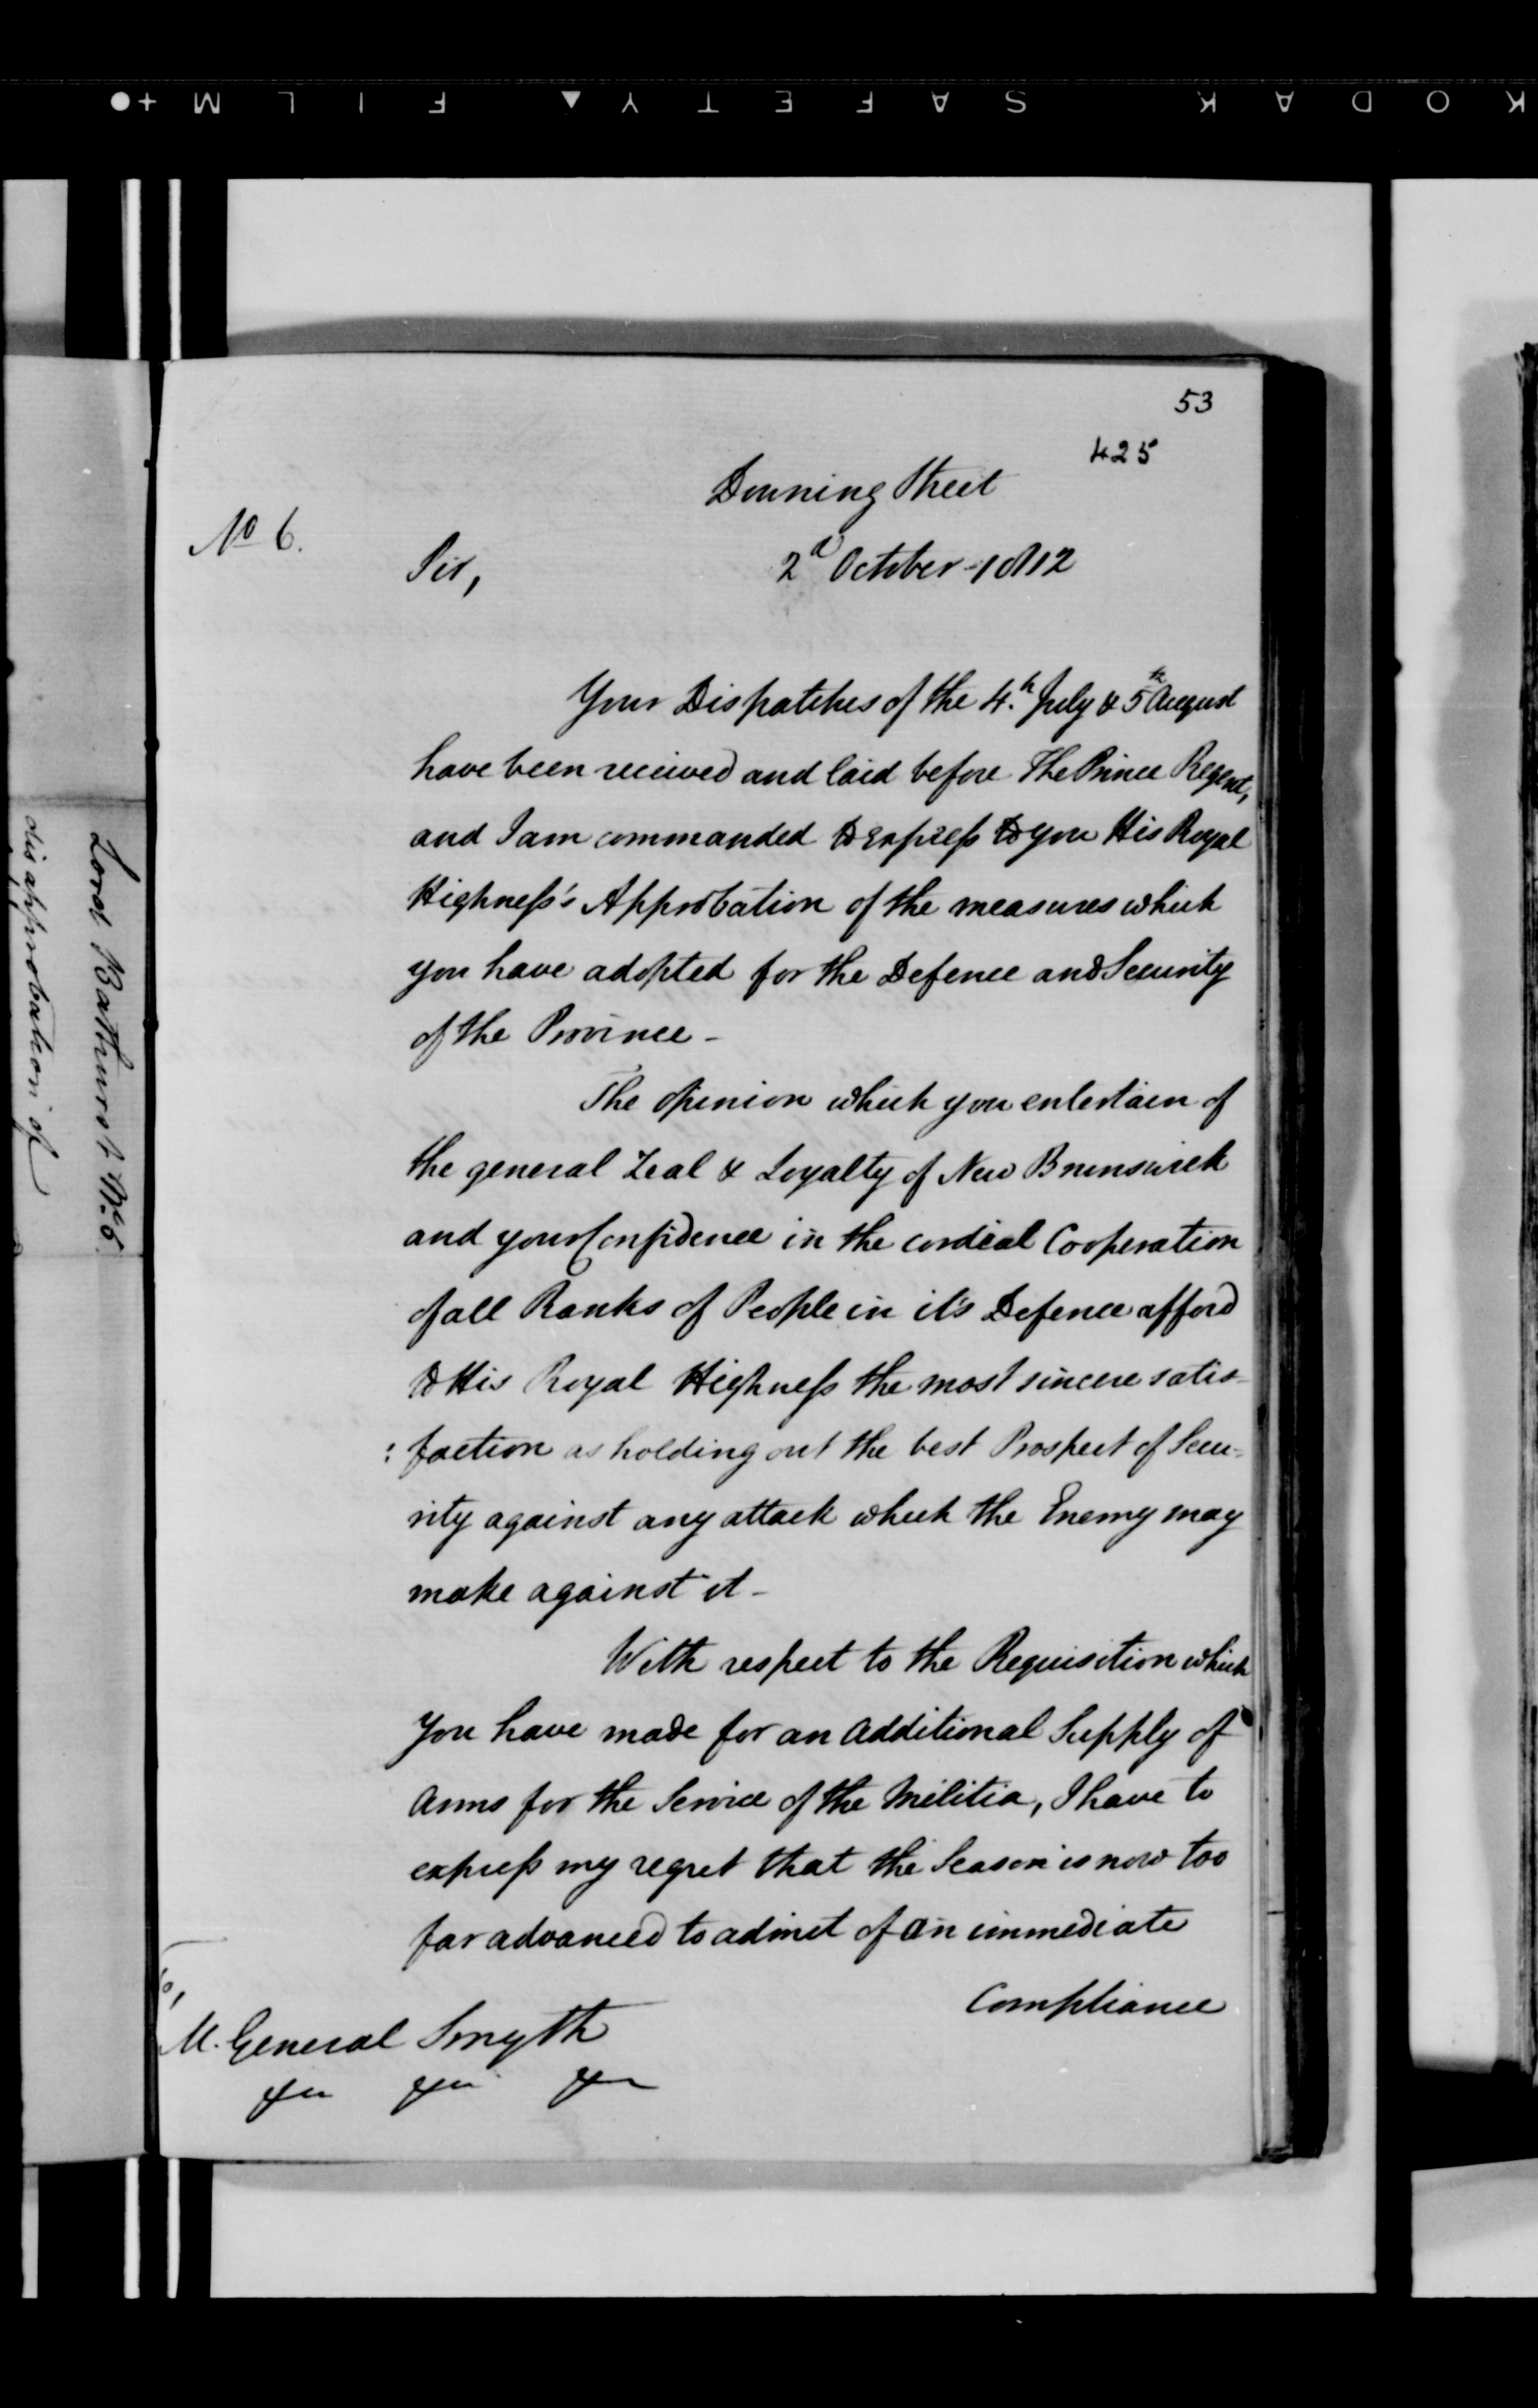 KODAK SAFETY FILM
53
425
Downing Street
No 6.
Sir,
2d October 1812
Your Dispatches of the 4.th July & 5th August
have been received and laid before The Prince Regent,
and I am commanded to express to you His Royal
Highness's Approbation of the measures which
you have adopted for the Defence and Security
of the Province -
The opinion which you entertain of
the general Zeal & Loyalty of New Brunswick
and your Confidence in the cordial Cooperation
of all Ranks of People in it's Defence afford
to His Royal Highness the most sincere satis-
: faction as holding out the best Prospect of Secu-
rity against any attack which the Enemy may
make against it -
With respect to the Requisition which
you have made for an Additional Supply of
Arms for the Service of the Militia, I have to
express my regret that the Season is now too
far advanced to admit of an immediate
Compliance
M. General Smyth
Lord Bathurst No. 6
his approbation of